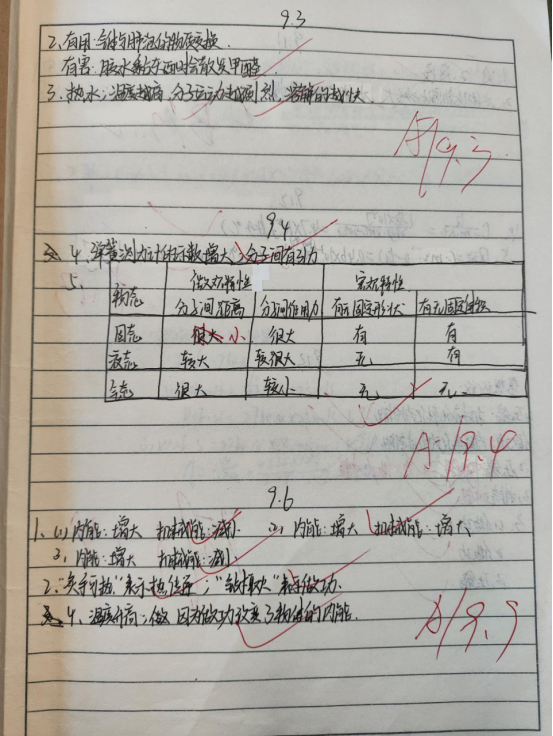 9.3
2、有用:气体与肺泡的物质交换.
有害:胶水粘东西时会散发甲醛
3、热水;温度越高,分子运动越剧烈,溶解的越快.
A/9.3
9.4
4、弹簧测力计的示数增大;分子间有引力
5、
物态 微观特性 宏观特性
分子间距离 分子间作用力 有无固定形状 有无固定体积
固态 很小 很大 有 有
液态 较大 较大 无 有
气态 很大 较小 无 无
A/9.4
9.6
1、(1)内能:增大 机械能:减小 (2)内能:增大 机械能:增大
(3)内能:增大 机械能:减小
2、"炙手可热"表示热传递;"钻木取火"表示做功.
4、温度升高;做 因为做功改变了物体的内能.
A/9.9